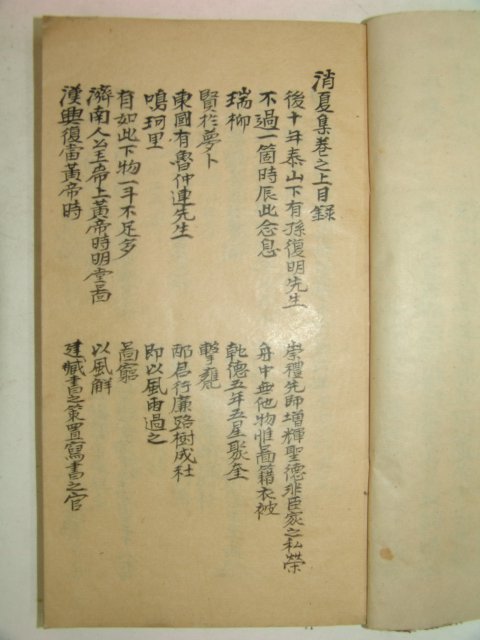 消夏集卷之上目錄
後十年泰山下有孫復明先生
崇禮先師增輝聖德非臣家之私榮
不過一箇時辰此念息
舟中無他物惟啚籍衣被
瑞柳
乾德五年五星聚奎
賢於夢卜
擊甕
東國有魯仲連先生
邴君行廉路樹成社
鳴珂里
即以風雨過之
有如此下物一斗不足多
啚窮
濟南人公玉帝上黃帝時明堂啚
以風解
漢興復當黃帝時
建藏書之策置寫書之官